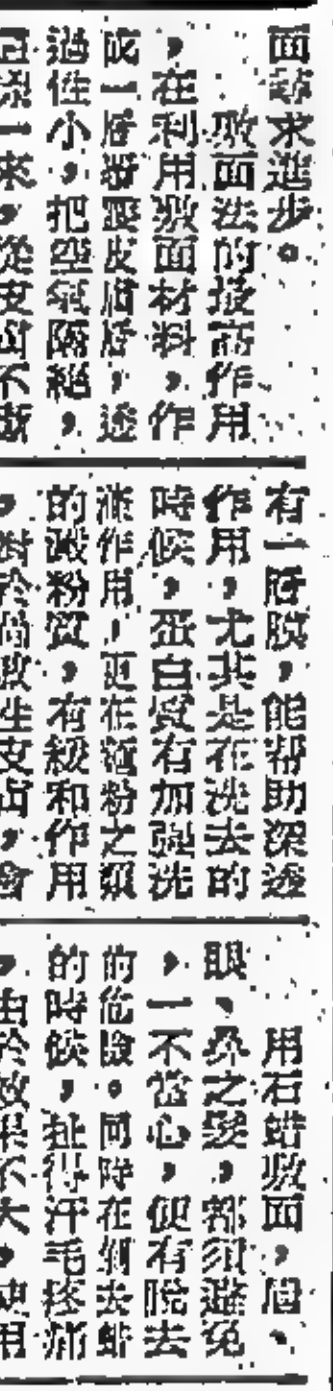 面尋求進步。
敷面法的最高作用
，在利用敷面材料，作
成一層緊壓皮膚層，透
過性小，把空氣隔絕，
一來，從皮膚不斷
有一層膜，能帮助深透
作用，尤其是在洗去的
時候，蛋白質有加强洗
滌作用，更在麵粉之類
的澱粉質，有緩和作用
，對於尙敏性皮膚，會
用石蜡敷面，眉、
眼、鼻之髮，都須避免
，一不當心，便有脫去
的危險。同時在剝去蜡
的時候，扯得汗毛疼痛
，由於效果不大，使用